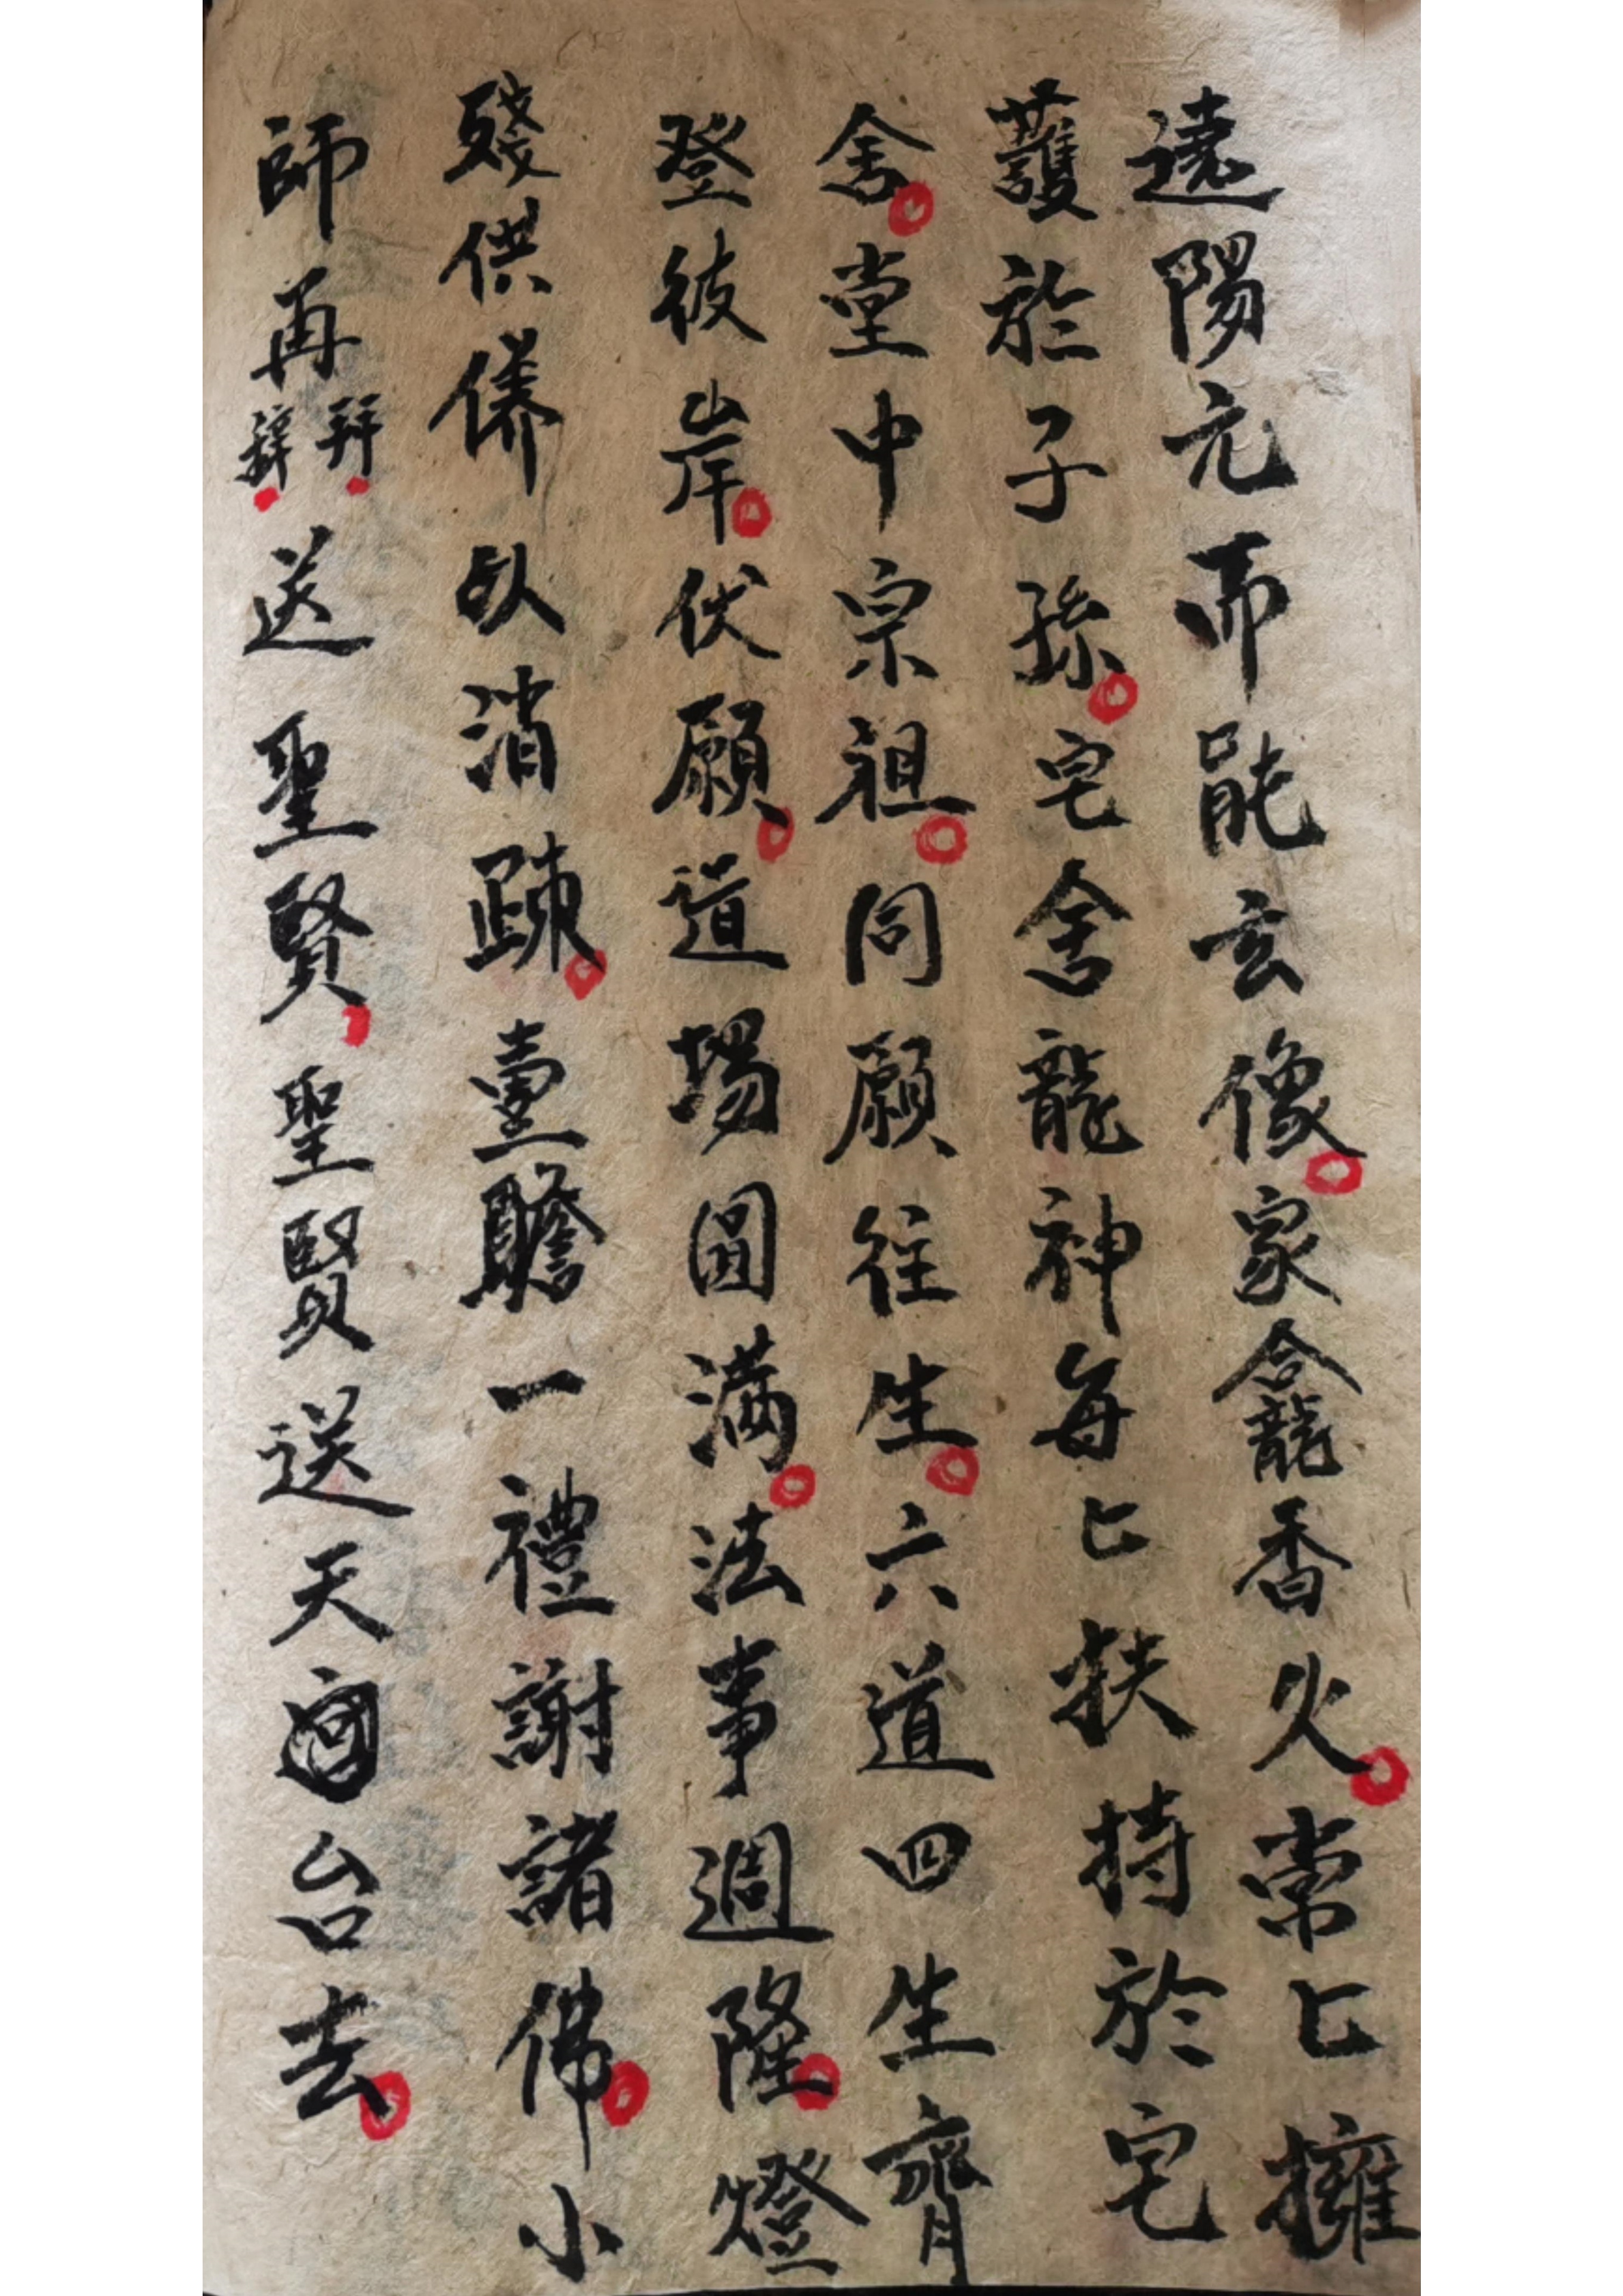 遶陽元而能玄像家龕香火常匕擁
護於子孫宅舍龍神每匕扶持於宅
舍堂中宗祖同願往生六道四生齊
登彼岸伏願道場圓满法事週隆燈
殘供俻臥消疎臺瞻一禮謝諸佛小
師再拜辞送聖賢聖賢送天回台去